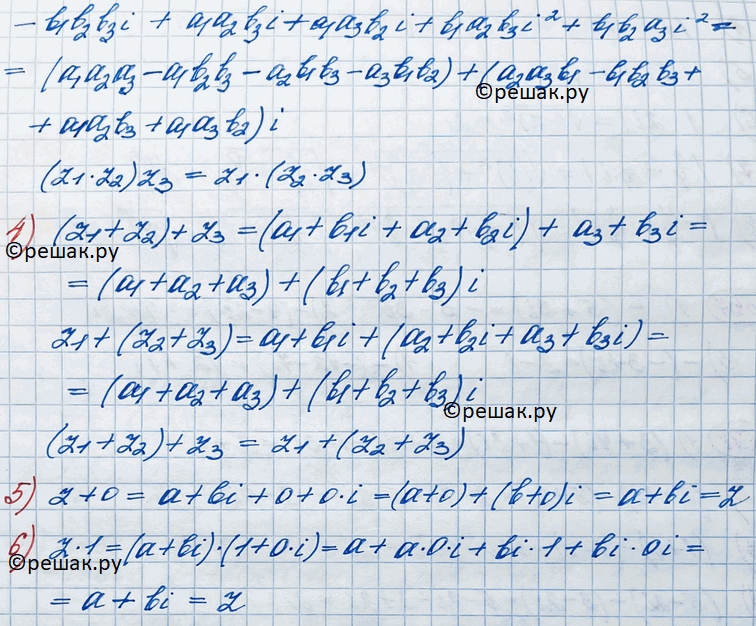 - b₁b₂b₃i + a₁a₂b₃i + a₁a₃b₂i + b₁a₂b₃i² + b₁b₂a₃i² =
= (a₁a₂a₃ - a₁b₂b₃ - a₂b₁b₃ - a₃b₁b₂) + (a₂a₃b₁ - b₁b₂b₃ +
©решак.ру
+ a₁a₂b₃ + a₁a₃b₂) i
(z₁·z₂)z₃ = z₁·(z₂·z₃)
4) (z₁+z₂)+z₃ = (a₁+b₁i + a₂+b₂i) + a₃+b₃i =
©решак.ру
= (a₁+a₂+a₃) + (b₁+b₂+b₃) i
z₁+(z₂+z₃) = a₁+b₁i + (a₂+b₂i+a₃+b₃i) =
= (a₁+a₂+a₃) + (b₁+b₂+b₃) i
©решак.ру
(z₁+z₂)+z₃ = z₁+(z₂+z₃)
5) z+0 = a+bi+0+0·i = (a+0)+(b+0)i = a+bi = z
6) z·1 = (a+bi)·(1+0·i) = a+a·0·i+bi·1+bi·0i =
©решак.ру
= a+bi = z